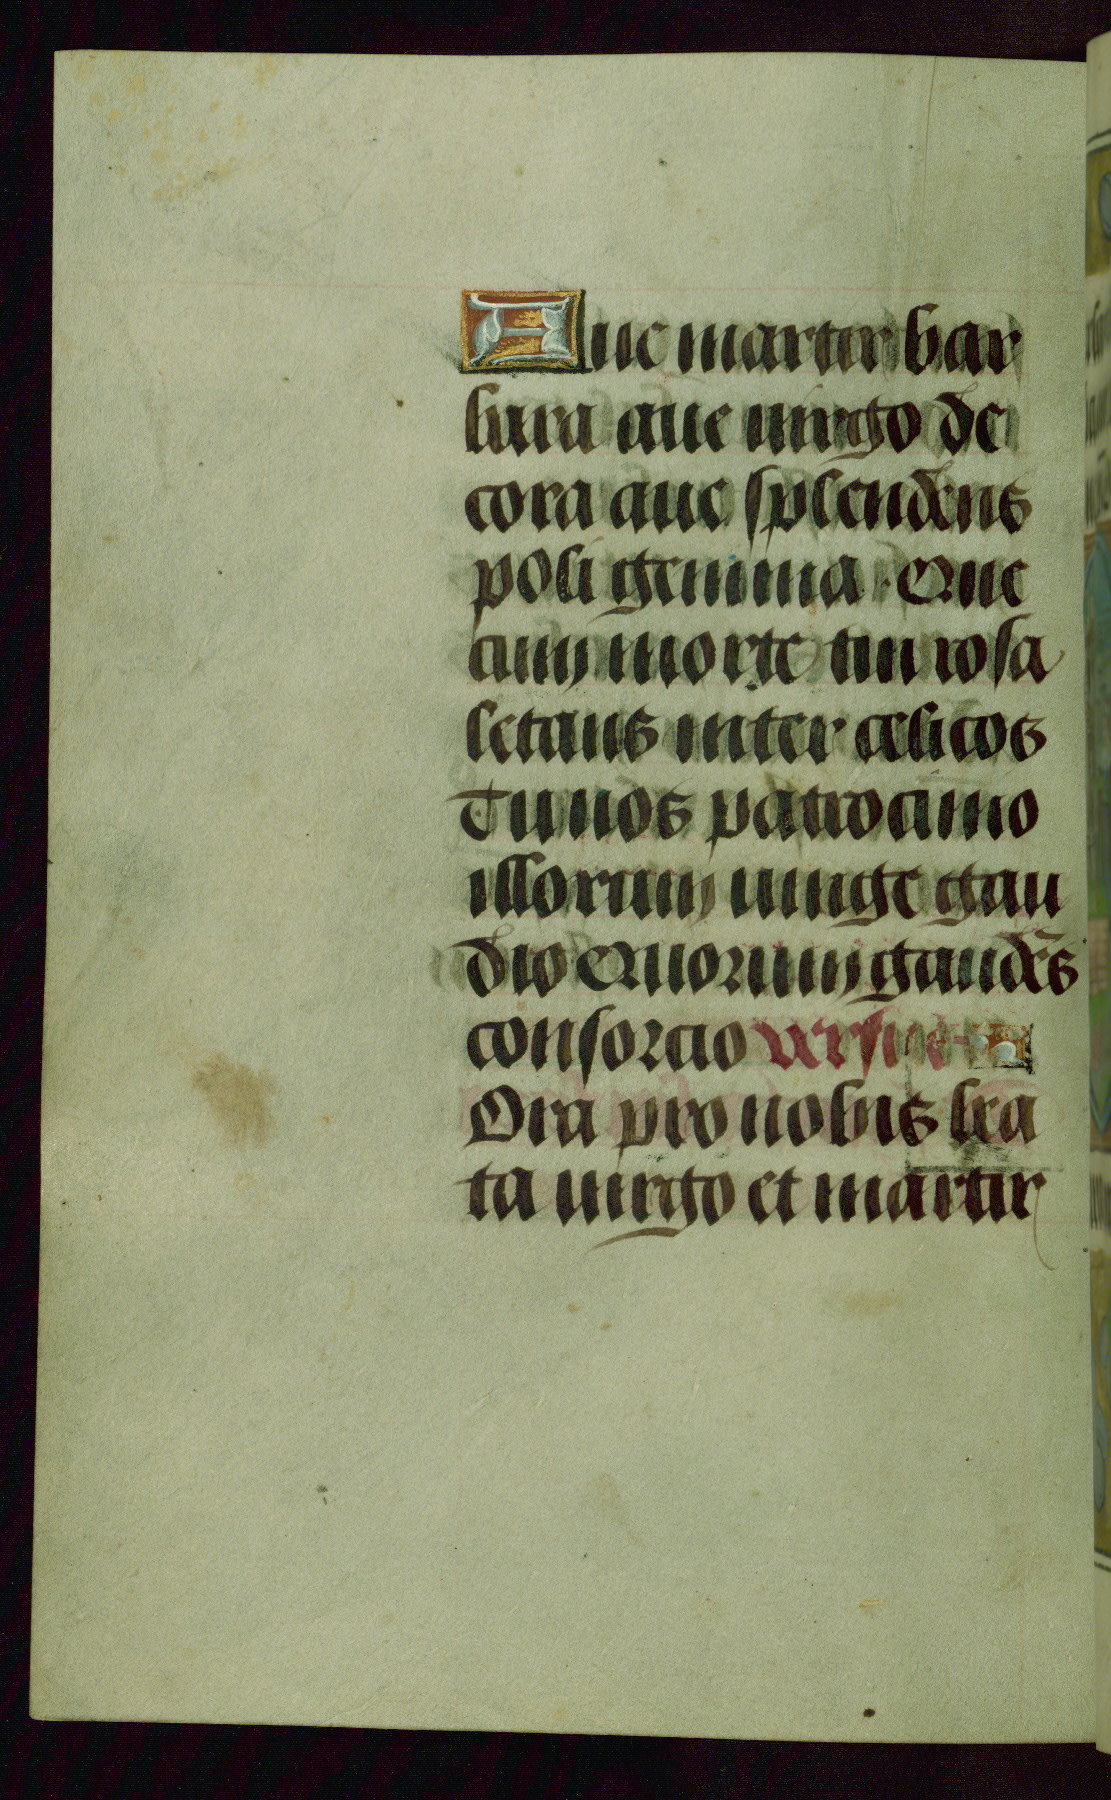 Aue martir bar
bara aue uirgo de
cora aue splendens
poli gemma. Que
cum morte tui rosa
letans inter celicos
Tu nos patrocinio
illorum iunge gau
dio Quorum gaudẽs
consorcio versus
Ora pro nobis bea
ta uirgo et martir